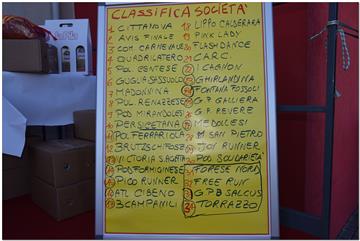 CLASSIFICA SOCIETA'
1 CITTANOVA
2 AVIS FINALE
3 COM. CARNEVALE
4 QUADRILATERO
5 POL CENTESE
6 GUGLIA SASSUOLO
7 MADONNINA
8 POL RENAZZESE
9 POD MIRANDOLES
10 PERSICETANA
11 POL FERRARIOLA
12
13 VICTORIA S. AGATA
14 POD FORMIGINESE
15 PICO RUNNER
16 ATL CIBENO
17 3 CAMPANILI
18 LIPPO CALDERARA
19 PINK LADY
20 FLASH DANCE
21 C.A.R.C.
22 I CAGNON
23 GHIRLANDINA
24 FONTANA FOSSOLI
25 G P GALLIERA
26 G.P. REVERE
27 MEDOLESI
28 M. SAN PIETRO
29 JOY RUNNER
30 POL SOLIARIETA'
FORESE NORD
FREE RUN
G P B SALCUS
TORRAZZO